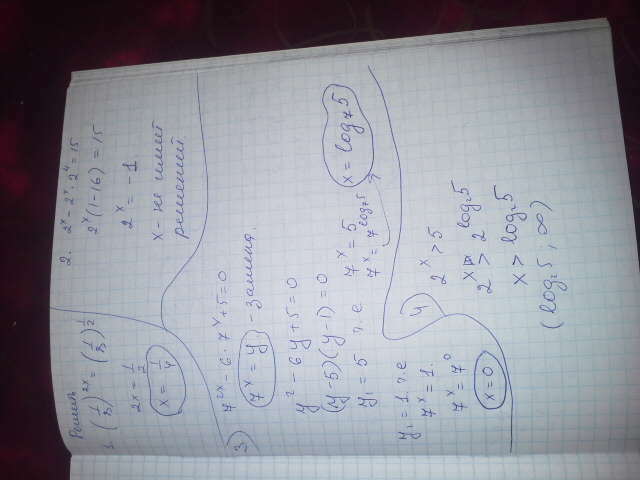 Решить
1. (1/3)^2x = (1/3)^1/2
2x = 1/2
x = 1/4
2. 2^x - 2^x · 2^4 = 15
2^x (1-16) = 15
2^x = -1
x - не имит
решений
3
7^2x - 6 · 7^x + 5 = 0
7^x = y - замена.
y^2 - 6y + 5 = 0
(y-5)(y-1) = 0
y₁ = 5 т.е 7^x = 5
7^x = 7^log₇5
x = log₇5
y₂ = 1. т.е
7^x = 1.
7^x = 7^0
x = 0
4
2^x > 5
2^x > 2^log₂5
x > log₂5
(log₂5; ∞)